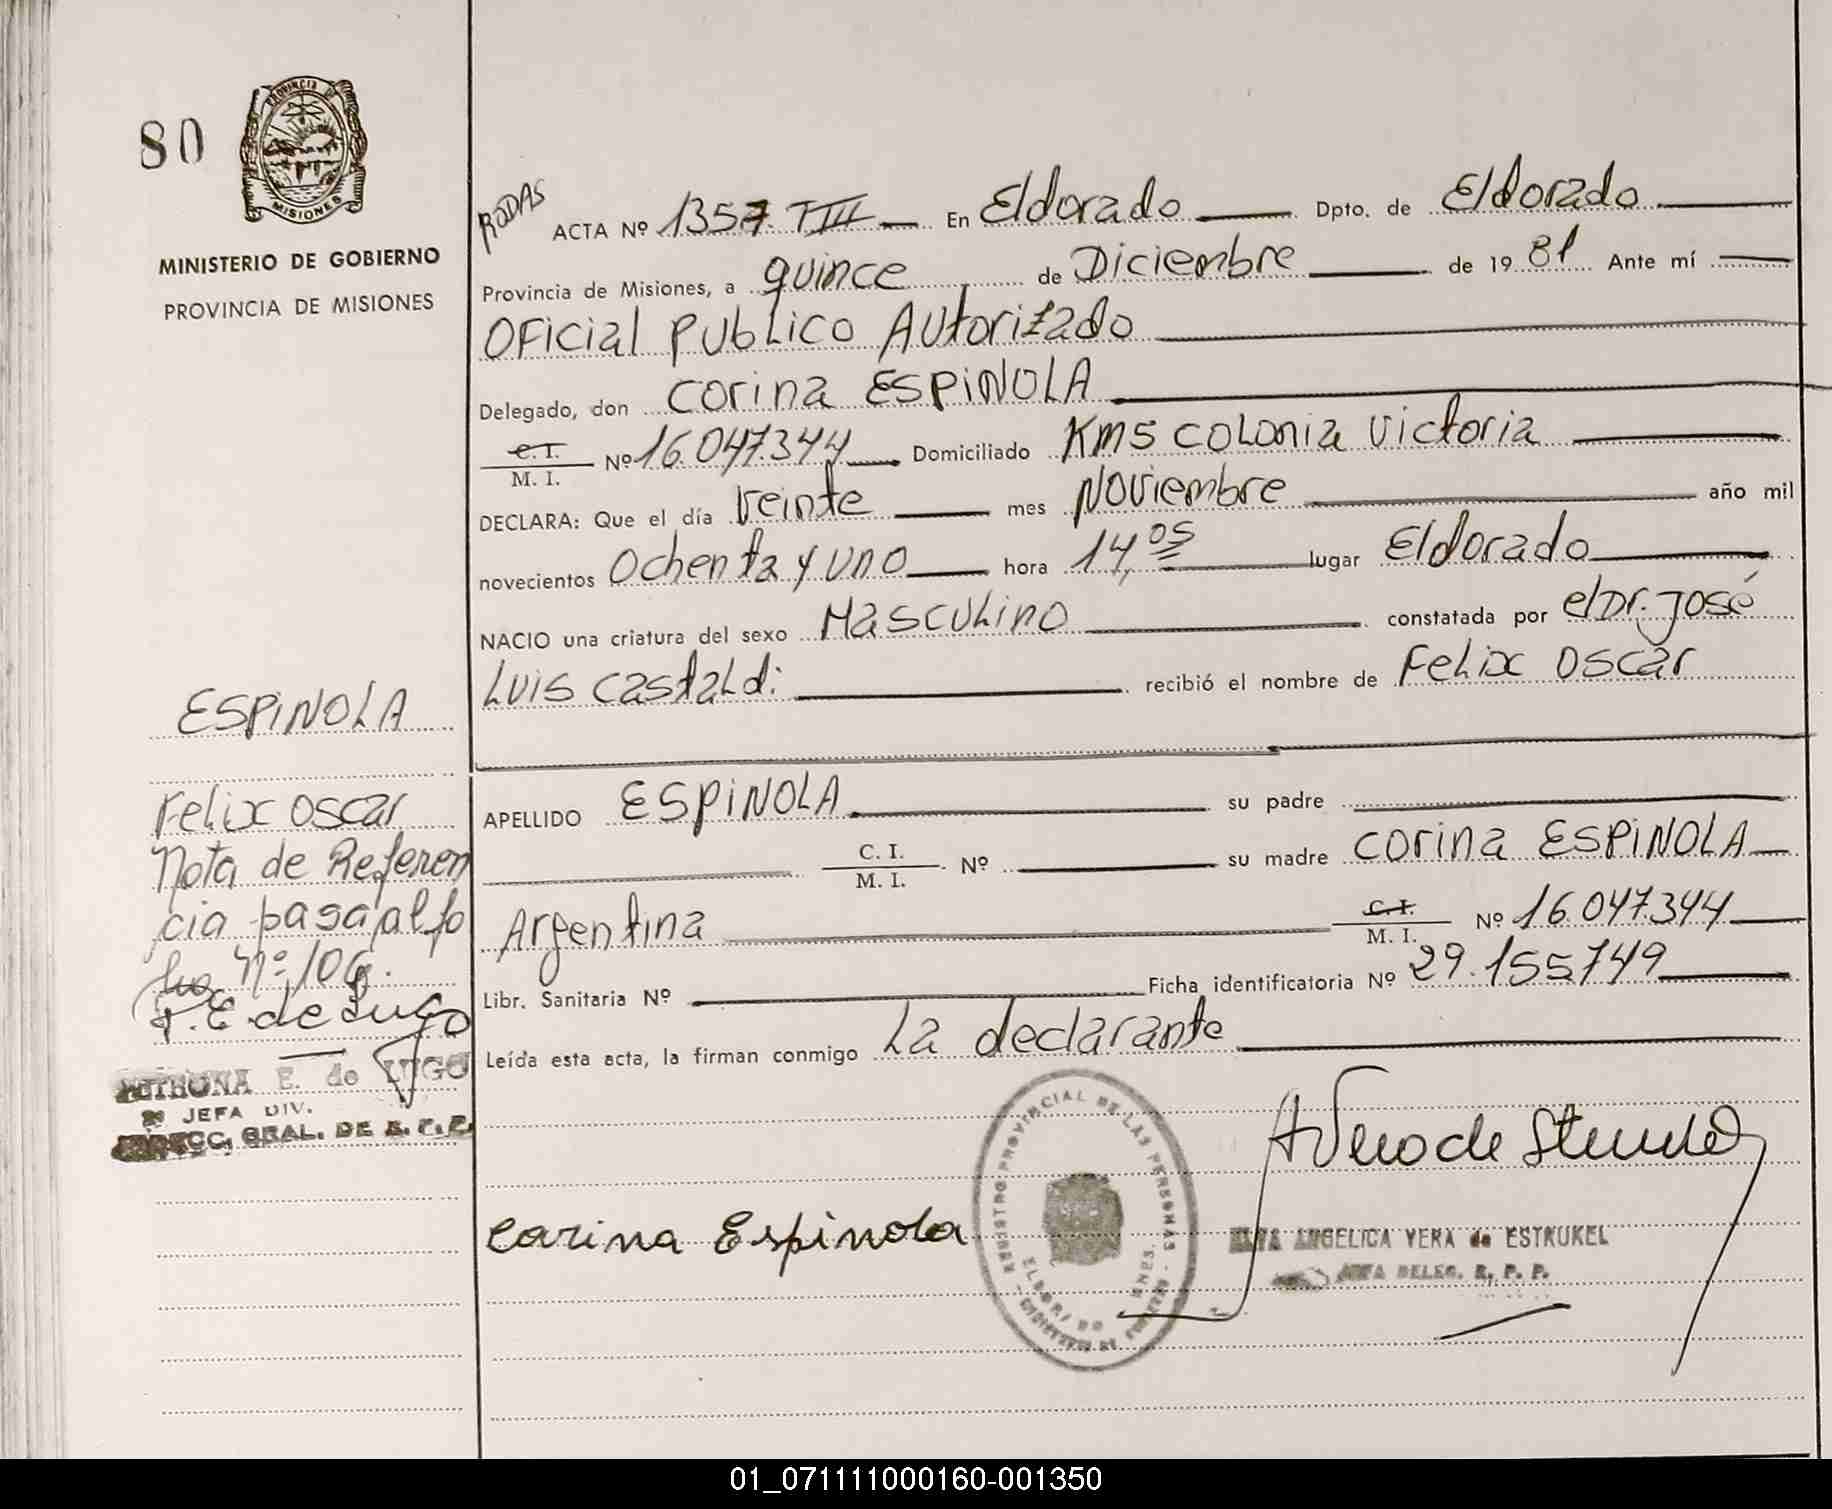 80
PROVINCIA DE
MISIONES
MINISTERIO DE GOBIERNO
PROVINCIA DE MISIONES
RODAS
ACTA Nº 1357 TIII En Eldorado Dpto. de Eldorado
Provincia de Misiones, a quince de Diciembre de 1981 Ante mí
Oficial Publico Autorizado
Delegado, don Corina ESPINOLA
C. I.
M. I. Nº 16.047.344 Domiciliado Km5 Colonia Victoria
DECLARA: Que el día Veinte mes Noviembre año mil
novecientos Ochenta y uno hora 14,05 lugar Eldorado
NACIO una criatura del sexo Masculino constatada por el Dr. José
Luis Castaldi recibió el nombre de Felix Oscar
ESPINOLA
Felix Oscar
Nota de Referen
cia pasa al fo
lio Nº 106.
P. E de Lugo
PETRONA E. de LUGO
JEFA DIV.
DIRECC. GRAL. DE R. P. P.
APELLIDO ESPINOLA su padre
C. I.
M. I. Nº su madre Corina ESPINOLA
Argentina C. I.
M. I. Nº 16.047.344
Libr. Sanitaria Nº Ficha identificatoria Nº 29.155.749
Leída esta acta, la firman conmigo La declarante
REGISTRO PROVINCIAL DE LAS PERSONAS
ELDORADO
Corina Espinola
A Vera de
ANGELICA VERA de ESTRUKEL
DELEG. R. P. P.
01_071111000160-001350